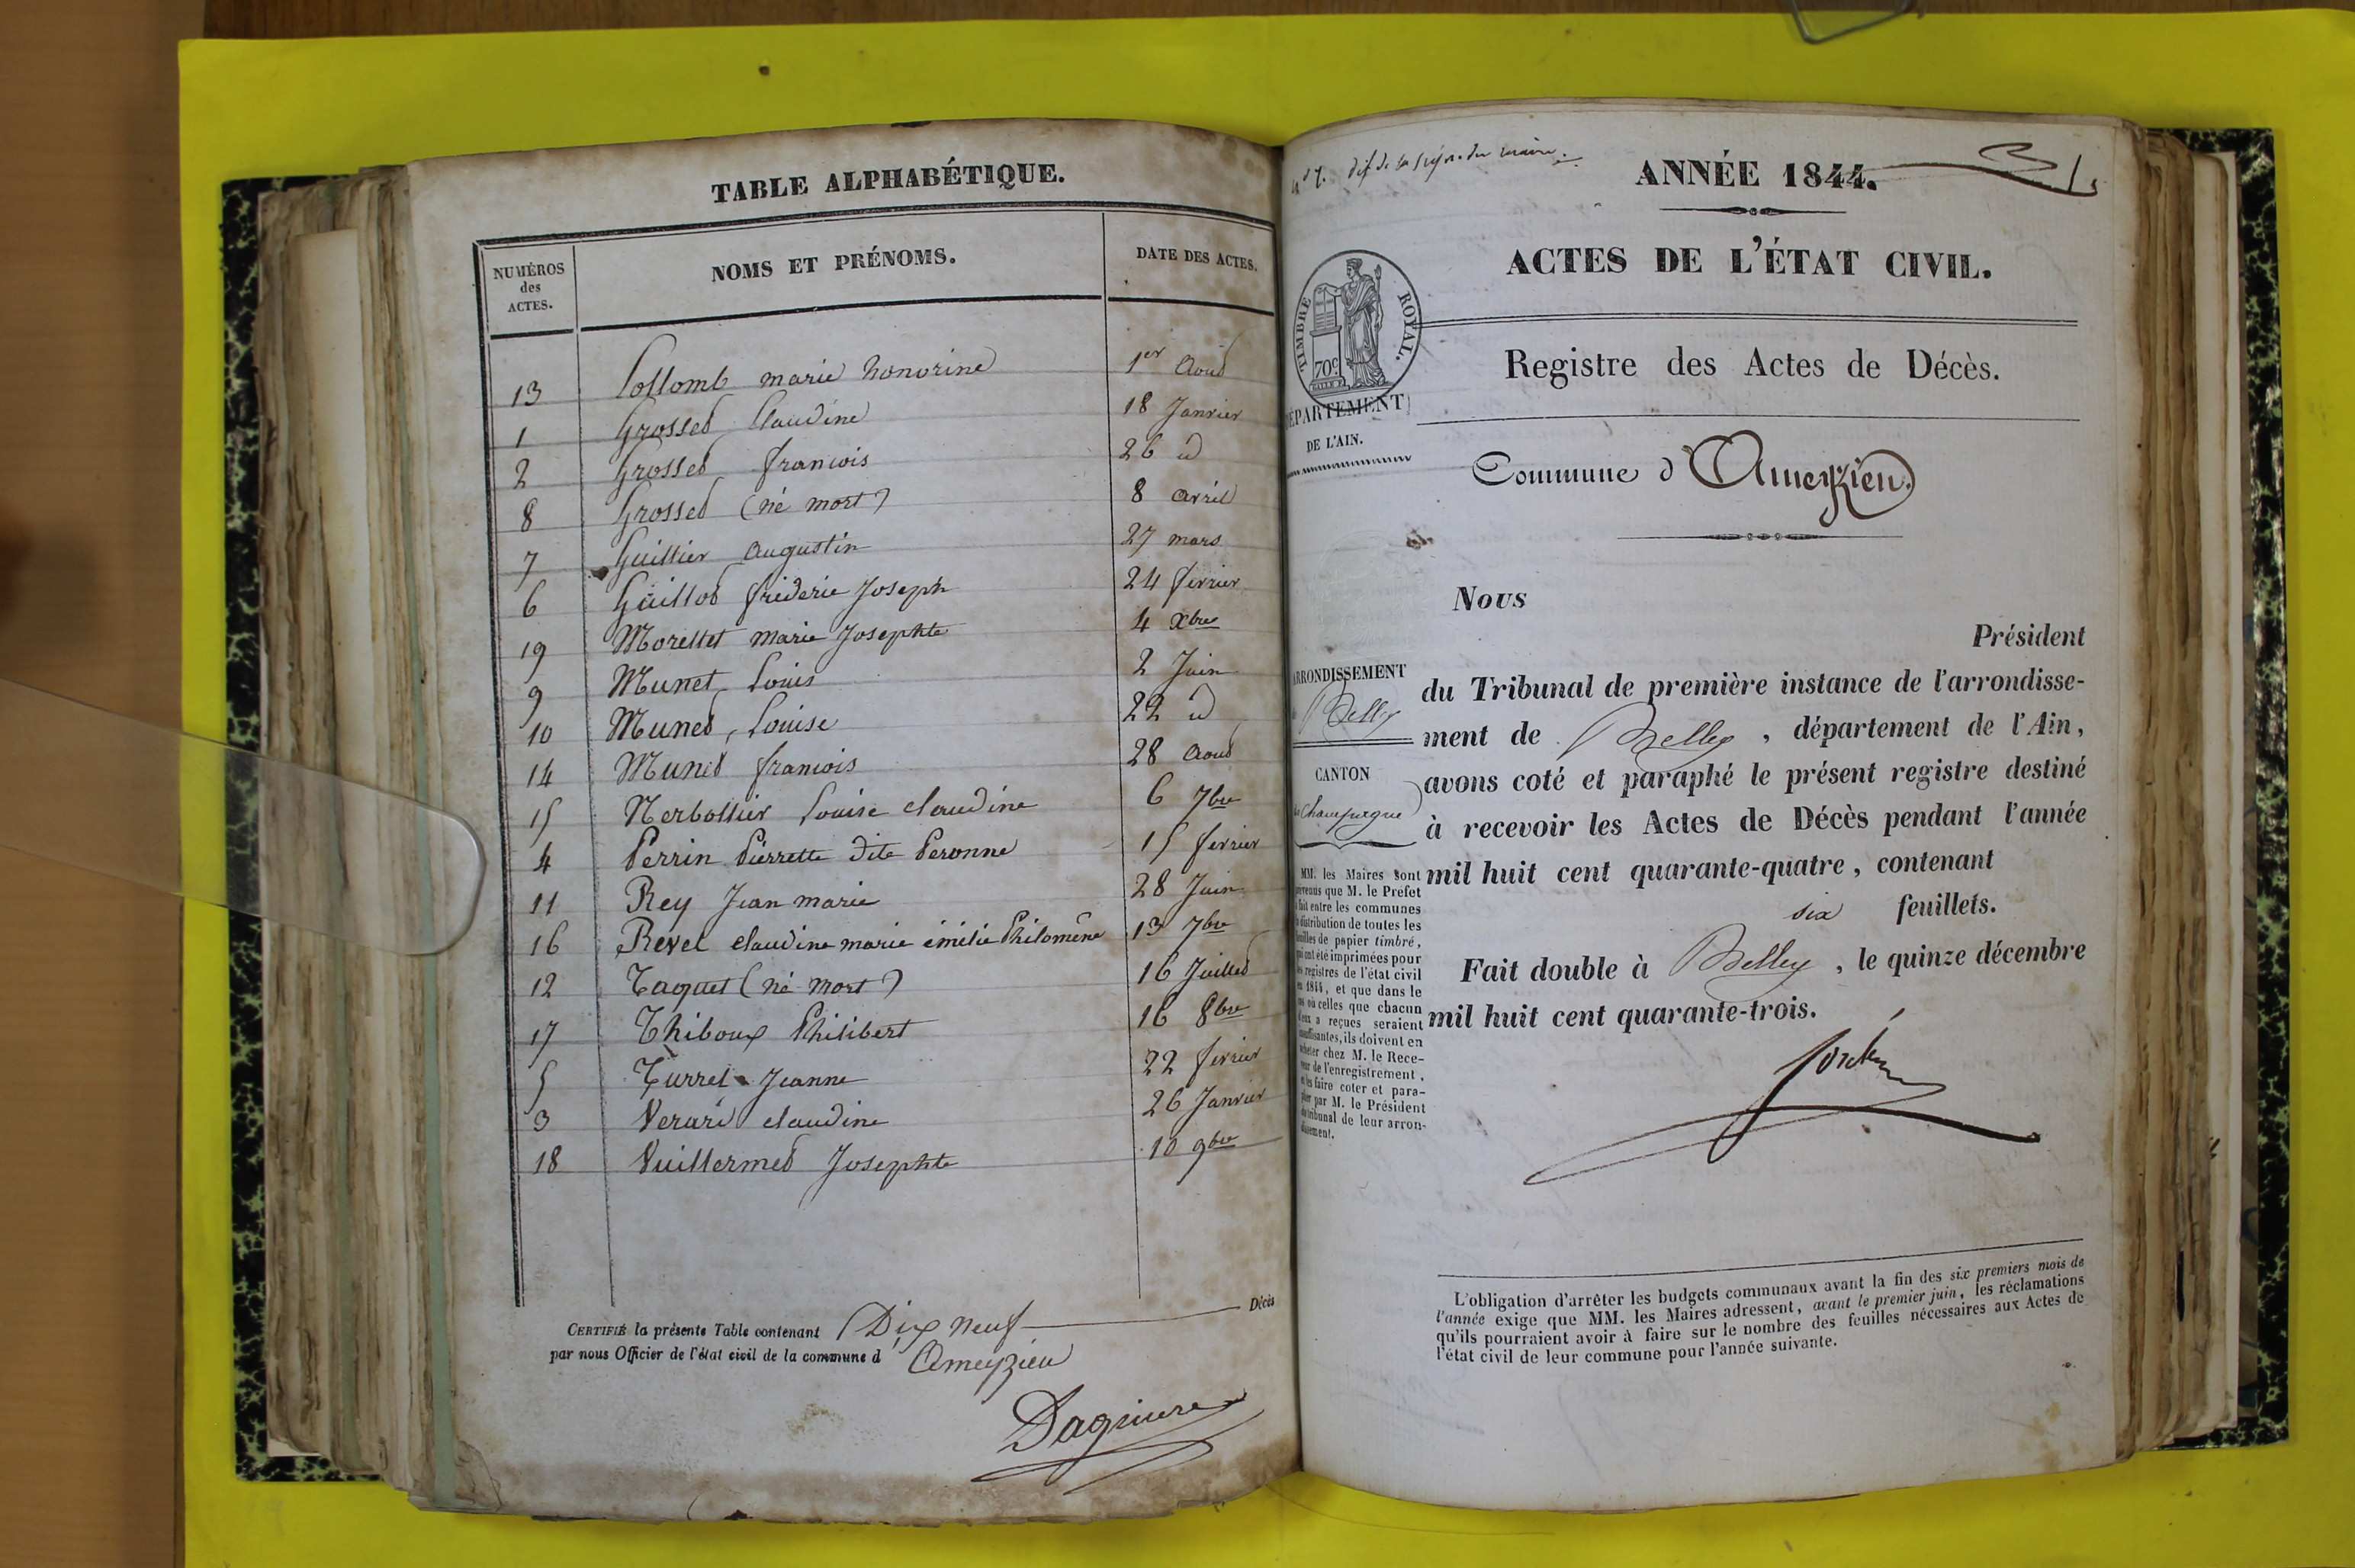 TABLE ALPHABÉTIQUE.
NUMÉROS des ACTES. NOMS ET PRÉNOMS. DATE DES ACTES.
13 Collomb marie honorine 1er Aoud
1 Grossed Claudine 18 Janvier
2 Grossed francois 26 id
8 Grossed (né mort) 8 avril
7 Guillier augustin 27 mars
6 Guillod fréderic Joseph 24 fevrier
19 Morellet marie Josephte 4 Xbre
9 Munet Louis 2 Juin
10 Muned, Louise 22 id
14 Muned francois 28 Aoud
15 Nerbollier Louise claudine 6 7bre
4 Perrin Pierrette dite Peronne 15 fevrier
11 Rey Jean marie 28 Juin
16 Revel claudine marie émélie Philomène 13 7bre
12 Taquet (né mort) 16 Juilled
17 Thiboux Philibert 16 8bre
5 Turrel Jeanne 22 fevrier
3 claudine 26 Janvier
18 Vuillermed Josephte 10 9bre
CERTIFIÉ la présente Table contenant Dix neuf Décès
par nous Officier de l'état civil de la commune d Ameyzieu
ANNÉE 1844.
ACTES DE L'ÉTAT CIVIL.
TIMBRE ROYAL.
70c
DÉPARTEMENT
DE L'AIN.
Registre des Actes de Décès.
Commune d'Ameyzieu
Nous
Président
ARRONDISSEMENT
Belley
CANTON
Champagne
du Tribunal de première instance de l'arrondisse-
ment de Belley, département de l'Ain,
avons coté et paraphé le présent registre destiné
à recevoir les Actes de Décès pendant l'année
mil huit cent quarante-quatre, contenant
six feuillets.
Fait double à Belley, le quinze décembre
mil huit cent quarante-trois.
MM. les Maires sont
que M. le Préfet
fait entre les communes
distribution de toutes les
de papier timbré,
ont été imprimées pour
registres de l'état civil
1844, et que dans le
où celles que chacun
a reçues seraient
insuffisantes, ils doivent en
acheter chez M. le Rece-
de l'enregistrement,
faire coter et para-
par M. le Président
tribunal de leur arron-
dissement.
L'obligation d'arrêter les budgets communaux avant la fin des six premiers mois de
l'année exige que MM. les Maires adressent, avant le premier juin, les réclamations
qu'ils pourraient avoir à faire sur le nombre des feuilles nécessaires aux Actes de
l'état civil de leur commune pour l'année suivante.